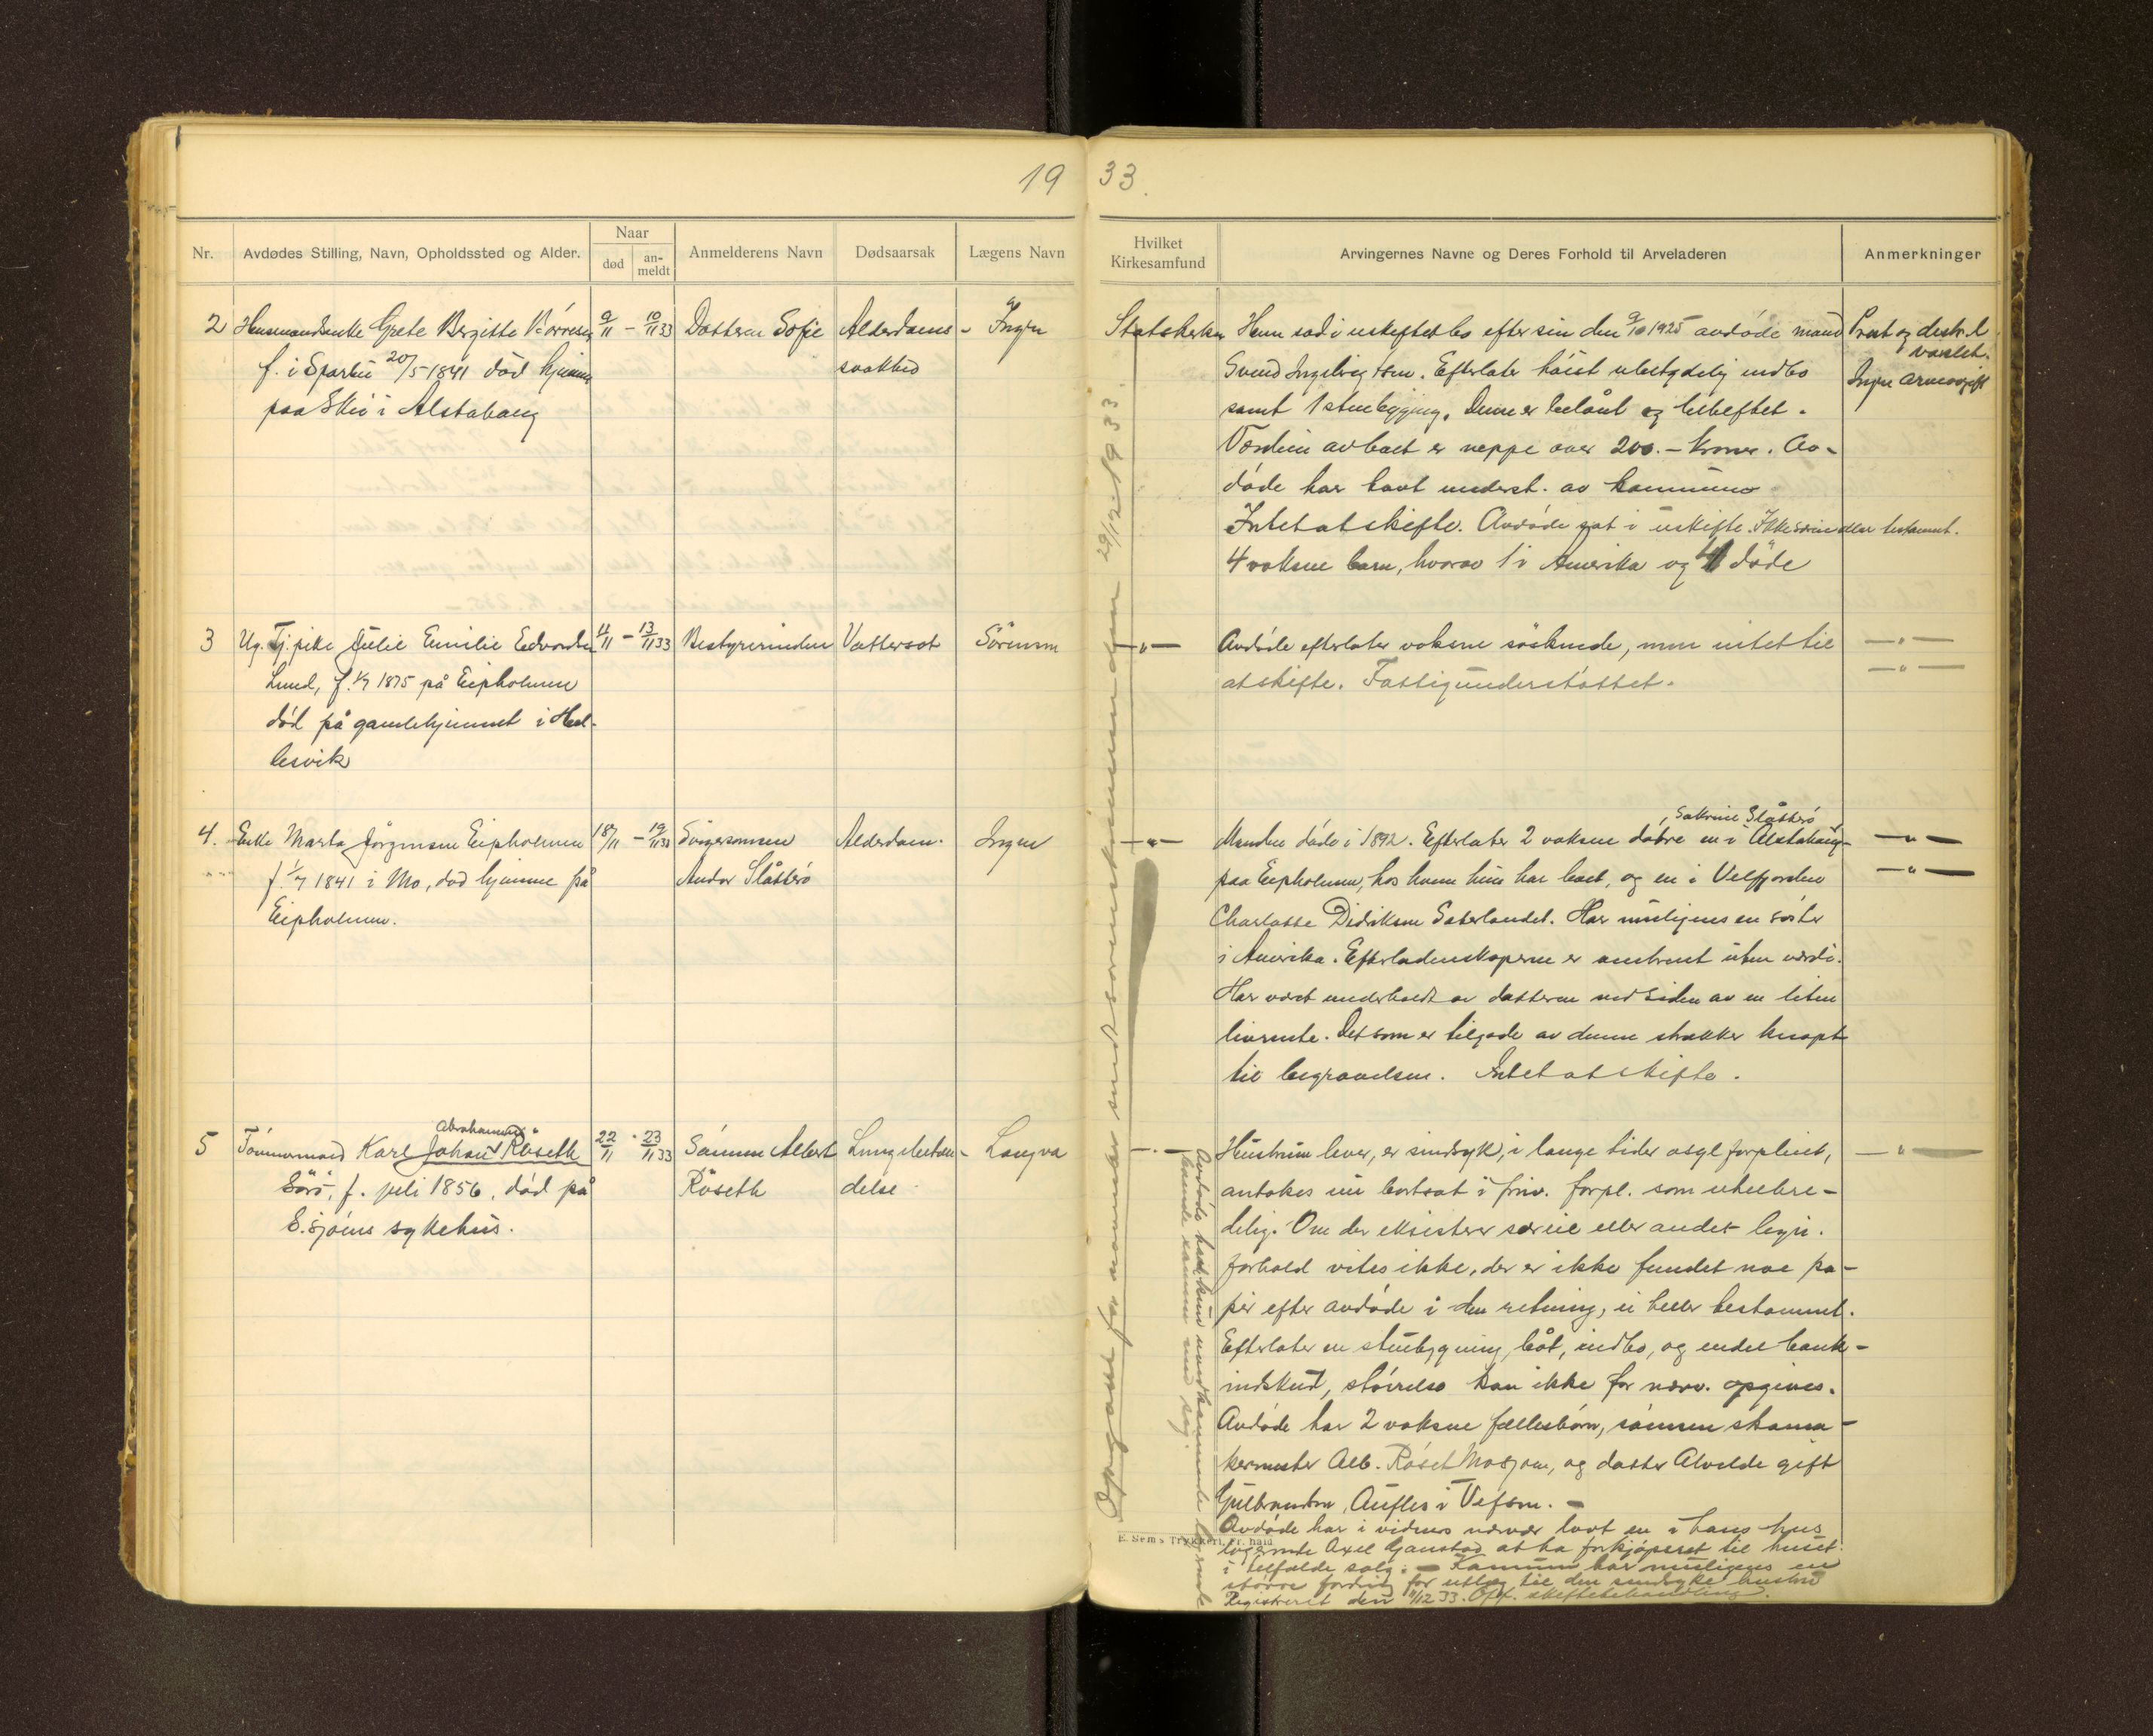 19 33.
Nr.
Avdødes Stilling, Navn, Opholdssted og Alder.
Naar
død
an-
meldt
Anmelderens Navn
Dødsaarsak
Lægens Navn
Hvilket
Kirkesamfund
Arvingernes Navne og Deres Forhold til Arveladeren
Anmerkninger
2 Husmandsenke Grete Bergitte Börresen
f. i Sparbu 20/5 1841 död hjemme
paa Skei i Alstahaug
9/11 – 10/11 33
Datteren Sofie
Alderdoms-
svakhed
Ingen
Statskirken
Hun sad i uskiftet bo efter sin den 9/10 1925 avdöde mand
Svend Ingebrigtsen. Efterlater höist ubetydelig indbo
samt 1 stuebygning. Denne er belånt og beheftet.
Værdien av boet er neppe over 200.- kroner. Av-
döde har havt underst. av kommune
Intet at skifte. Avdöde sat i uskifte. Ikke særeie eller testament.
4 voksne barn, hvorav 1 i Amerika og döde
Prest og distr.l
varslet.
Ingen arveavgift
3 Ug. Tj. pike Julie Emilie Edvardsen
Lund, f. 1/7 1875 på Eipholmen
död på gamlehjemmet i Hel-
lesvik
11/11 – 13/11 33
Bestyrerinden
Vattersot
Sörensen
— " —
Avdöde efterlater voksne söskende, men intet til
at skifte. Fattigunderstöttet.
— " —
— " —
4. Enke Marta Jörgensen Eipholmen
f. 1/7 1841 i Mo, död hjemme på
Eipholmen.
18/11 – 19/11 33
Svigersönnen
Andor Slåtterö
Alderdom.
Ingen
— " —
, Sakrine Slåtterö,
Manden döde i 1892. Efterlater 2 voksne dötre en i Alstahaug
paa Eipholmen, hos hvem hun har boet, og en i Velfjorden
Charlotte Didriksen Sæterlandet. Har muligens en söster
i Amerika. Efterladenskaperne er omtrent uten værdi.
Har været underholdt av datteren ved siden av en liten
livrente. Det som er tilgode av denne strekker knapt
til begravelsen. Intet at skifte.
— " —
— " —
5 Tömmermand Karl Johan Abrahamsen Röseth
Sörö, f. juli 1856, död på
S.sjöens sykehus.
22/11 · 23/11 33
Sönnen Albert
Röseth
Lungebetæn-
delse
Langva
— " —
Hustruen lever, er sindsyk, i lange tider asyl forpleiet,
antakes nu bortsat i priv. forpl. som uhelbre-
delig. Om der eksisterer særeie eller andet legn.
forhold vites ikke, der er ikke fundet noe pa-
pir efter avdöde i den retning, ei heller testament.
Efterlater en stuebygning, båt, indbo, og endel bank-
indskud, störrelse kan ikke for nærv. opgives.
Avdöde har 2 voksne fellesbörn, sönnen skoma-
kermester Alb. Röset Mosjöen, og datter Alvilde gift
Gulbrandsen, Aufles i Vefsen. –
Avdöde har i vidners nærvær lovt en i hans hus
logerende Axel Gaustad at ha forkjöpsret til huset
i tilfælde salg. – Kommunen har muligens en
större fordring for utlæg til den sindsyke hustru
Registreret den 11/12 33. Off. skiftebehandling.
— " —
Opgave for november sendt sorenskriveren den 29/12 1933
E. Sem's Trykkeri, Fr.hald